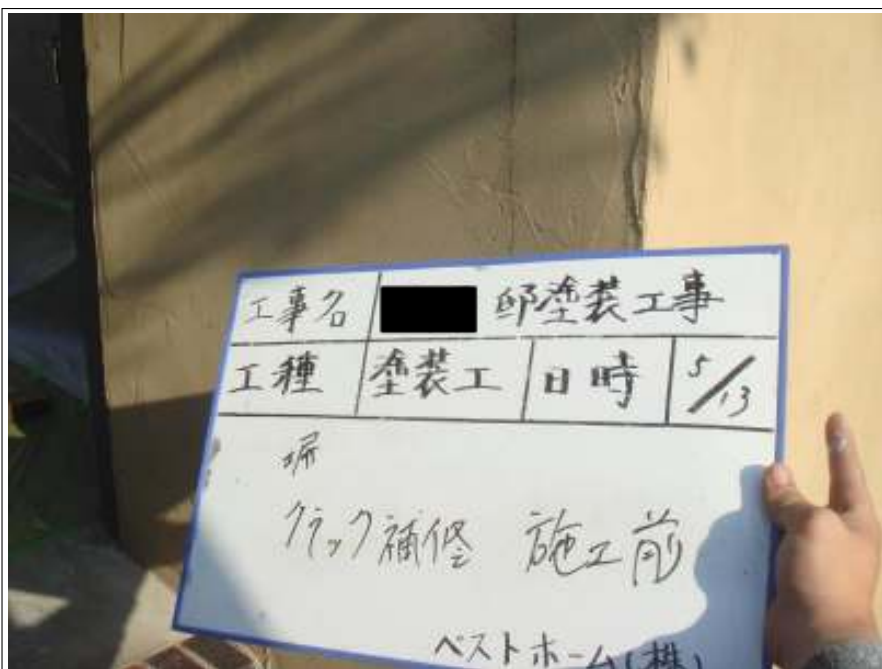 工事名 邸塗装工事
工種 塗装工 日時 5/13
塀
クラック補修 施工前
ベストホーム(株)